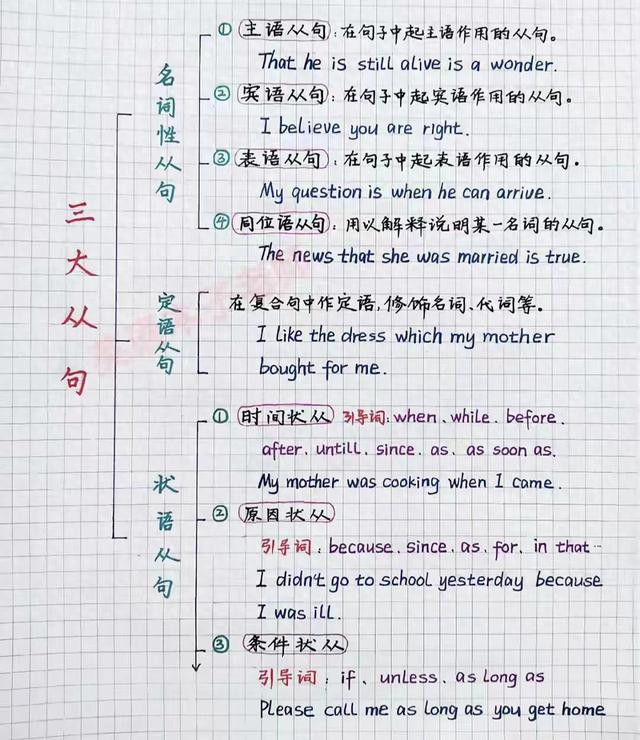 三大从句
名词性从句
① 主语从句：在句子中起主语作用的从句。
That he is still alive is a wonder.
② 宾语从句：在句子中起宾语作用的从句。
I believe you are right.
③ 表语从句：在句子中起表语作用的从句。
My question is when he can arrive.
④ 同位语从句：用以解释说明某一名词的从句。
The news that she was married is true.
定语从句
在复合句中作定语,修饰名词、代词等。
I like the dress which my mother
bought for me.
状语从句
① 时间状从 引导词:when、while、before、
after、untill、since、as、as soon as.
My mother was cooking when I came.
② 原因状从
引导词：because、since、as、for、in that…
I didn't go to school yesterday because
I was ill.
③ 条件状从
引导词：if、unless、as long as
Please call me as long as you get home